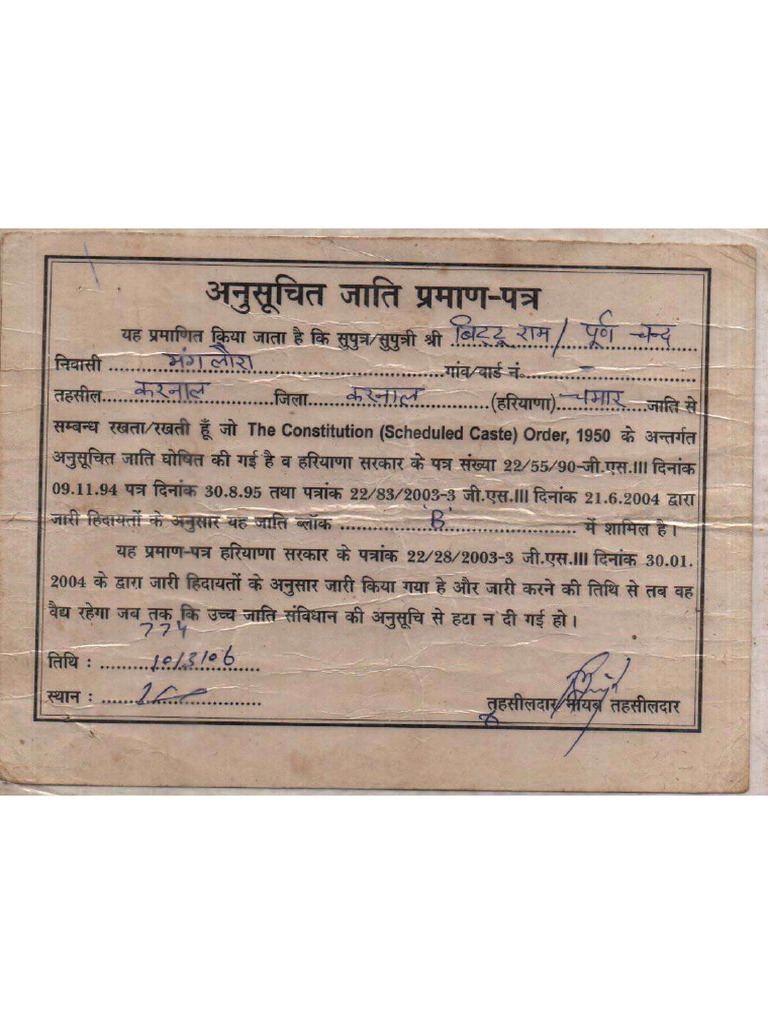 अनुसूचित जाति प्रमाण-पत्र
यह प्रमाणित किया जाता है कि सुपुत्र/सुपुत्री श्री बिट्टू राम / पूर्ण चन्द
निवासी मंगलौरा गांव/वार्ड नं. -
तहसील करनाल जिला करनाल (हरियाणा) चमार जाति से
सम्बन्ध रखता/रखती हूँ जो The Constitution (Scheduled Caste) Order, 1950 के अन्तर्गत
अनुसूचित जाति घोषित की गई है व हरियाणा सरकार के पत्र संख्या 22/55/90-जी.एस.III दिनांक
09.11.94 पत्र दिनांक 30.8.95 तथा पत्रांक 22/83/2003-3 जी.एस.III दिनांक 21.6.2004 द्वारा
जारी हिदायतों के अनुसार यह जाति ब्लॉक 'B' में शामिल है।
यह प्रमाण-पत्र हरियाणा सरकार के पत्रांक 22/28/2003-3 जी.एस.III दिनांक 30.01.
2004 के द्वारा जारी हिदायतों के अनुसार जारी किया गया हे और जारी करने की तिथि से तब वह
वैद्य रहेगा जब तक कि उच्च जाति संविधान की अनुसूचि से हटा न दी गई हो।
774
तिथि : 10/3/06
स्थान :
तहसीलदार नायब तहसीलदार